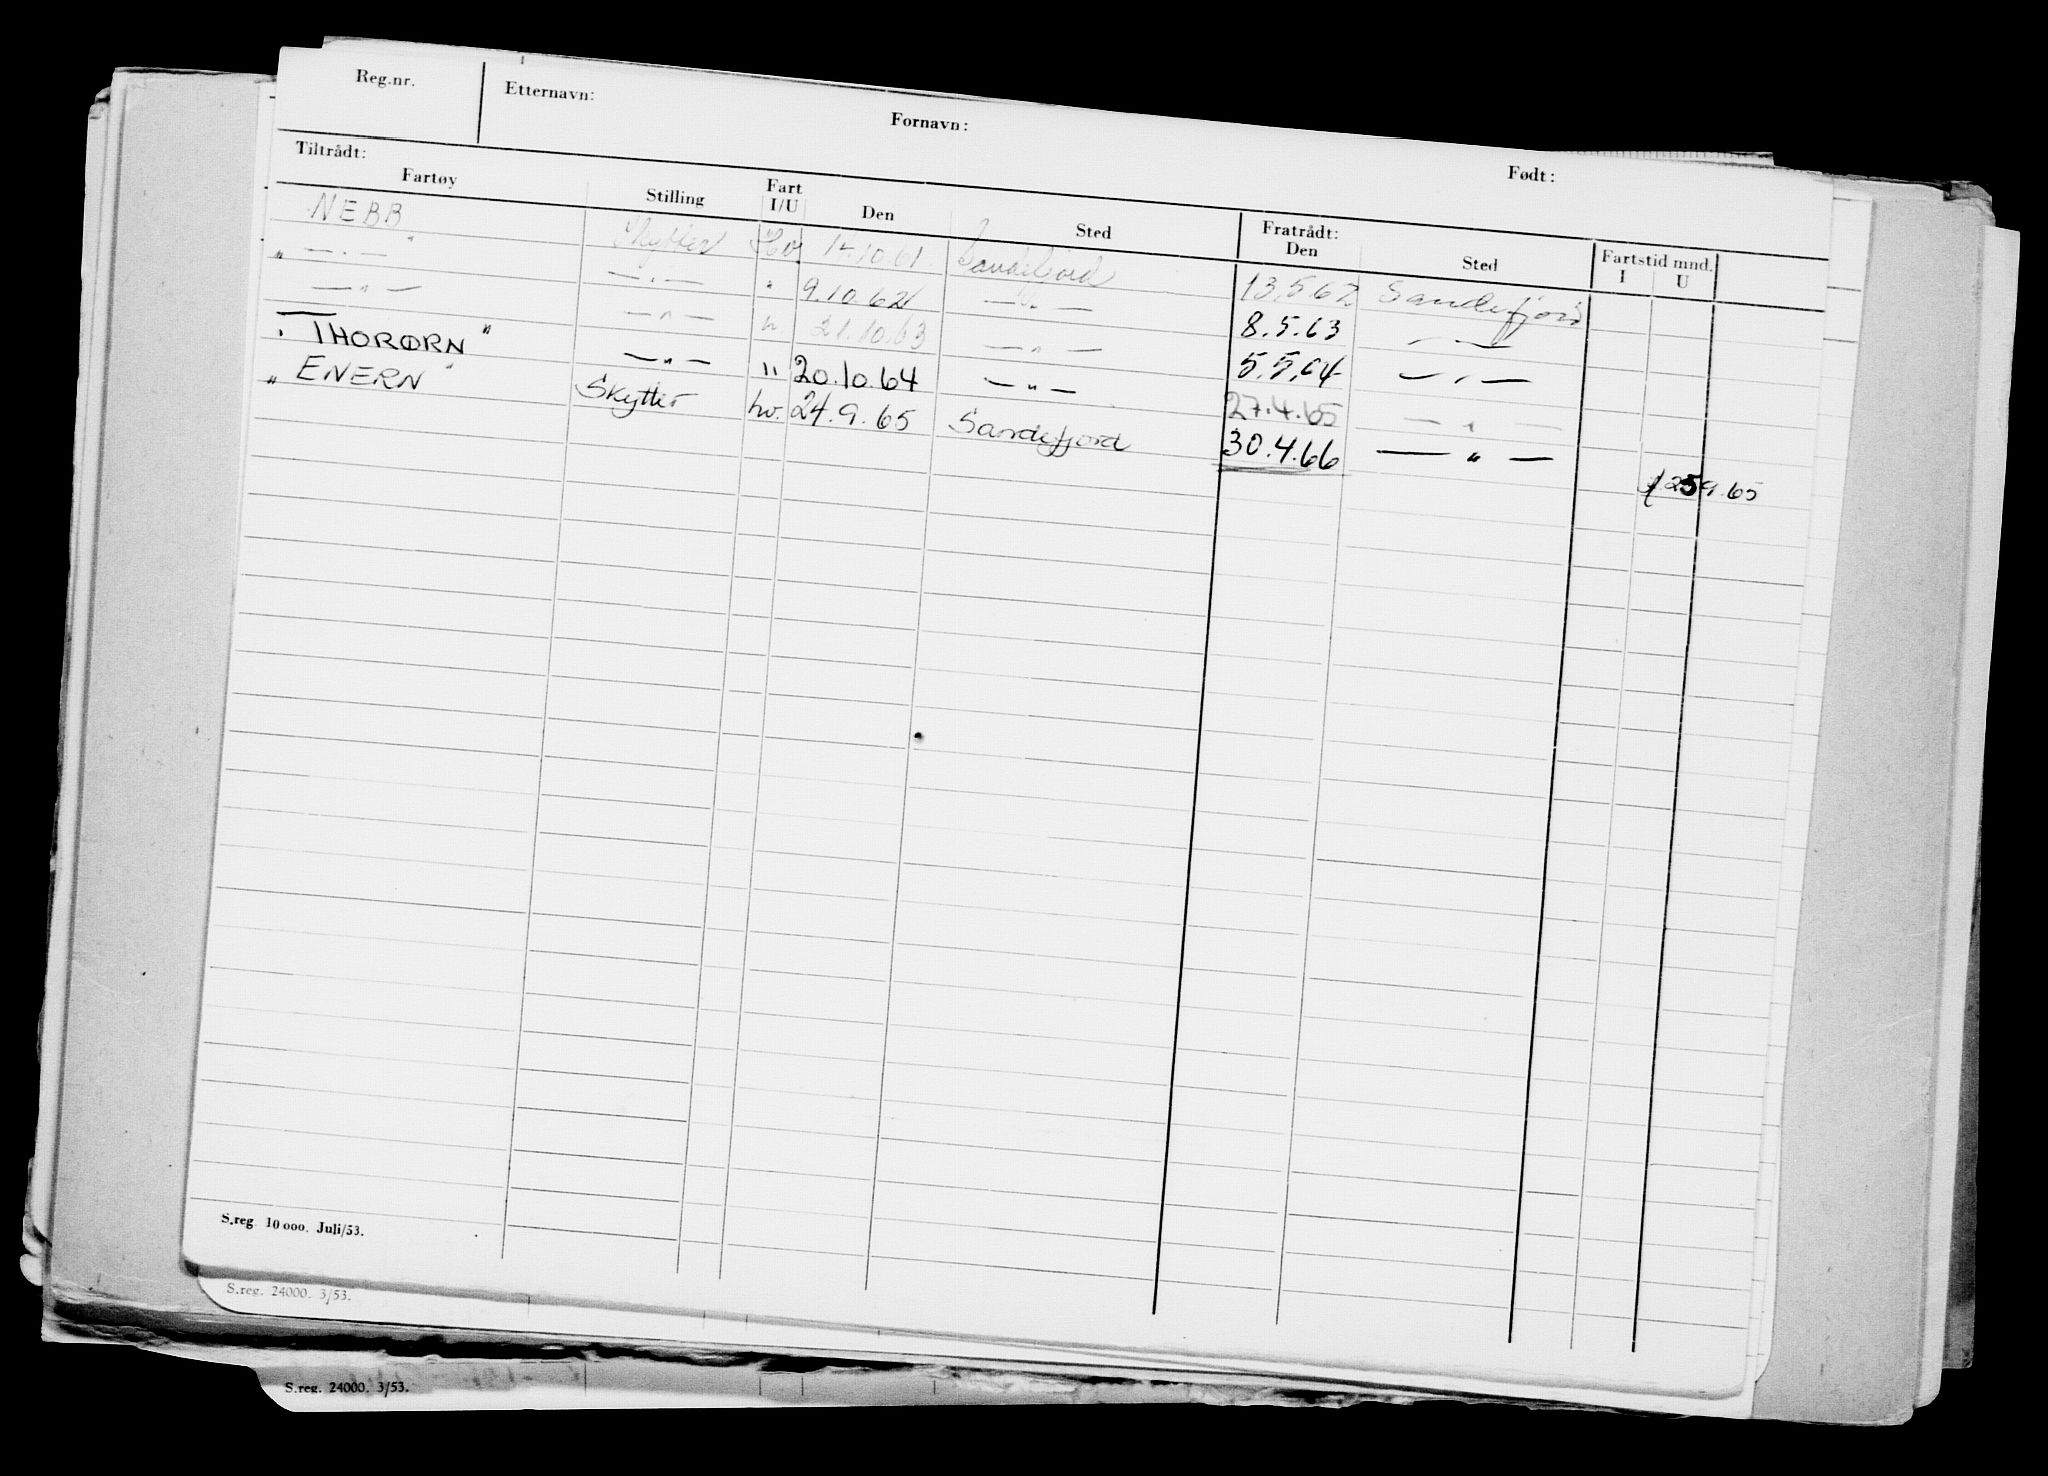 Reg.nr. Etternavn: Fornavn: Født:
Tiltrådt: Fratrådt: Fartstid mnd.
Fartøy Stilling Fart I/U Den Sted Den Sted I U
NEBB Skytter Hv. 10.61. Sandefjord 13.5.62 Sandefjord
" — . — " — . — " 9.10.62 — " — 8.5.63 — —
— " — — " — " 21.10.63 — " — 5.5.64 — " —
" THORØRN " — " — " 20.10.64 — " — 27.4.65 — " —
" ENERN " Skytter hv. 24.9.65 Sandefjord 30.4.66 — " —
259.65
S.reg. 10 000. Juli/53.
S.reg. 24000. 3/53.
S.reg. 24000. 3/53.